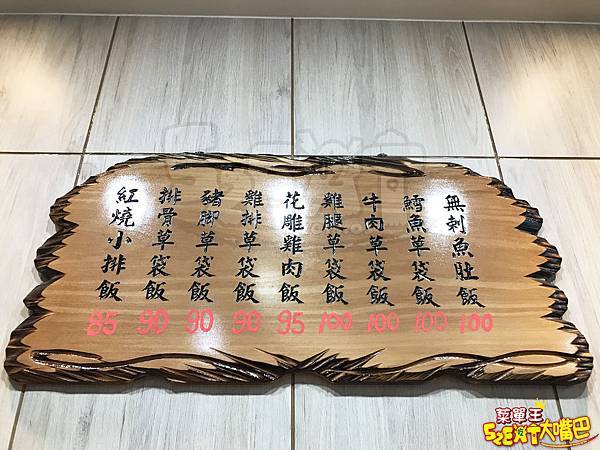 無刺魚肚飯 100
鱈魚草袋飯 100
牛肉草袋飯 100
雞腿草袋飯 100
花雕雞肉飯 95
雞排草袋飯 90
豬腳草袋飯 90
排骨草袋飯 90
紅燒小排飯 85
菜單王
52EAT大嘴巴